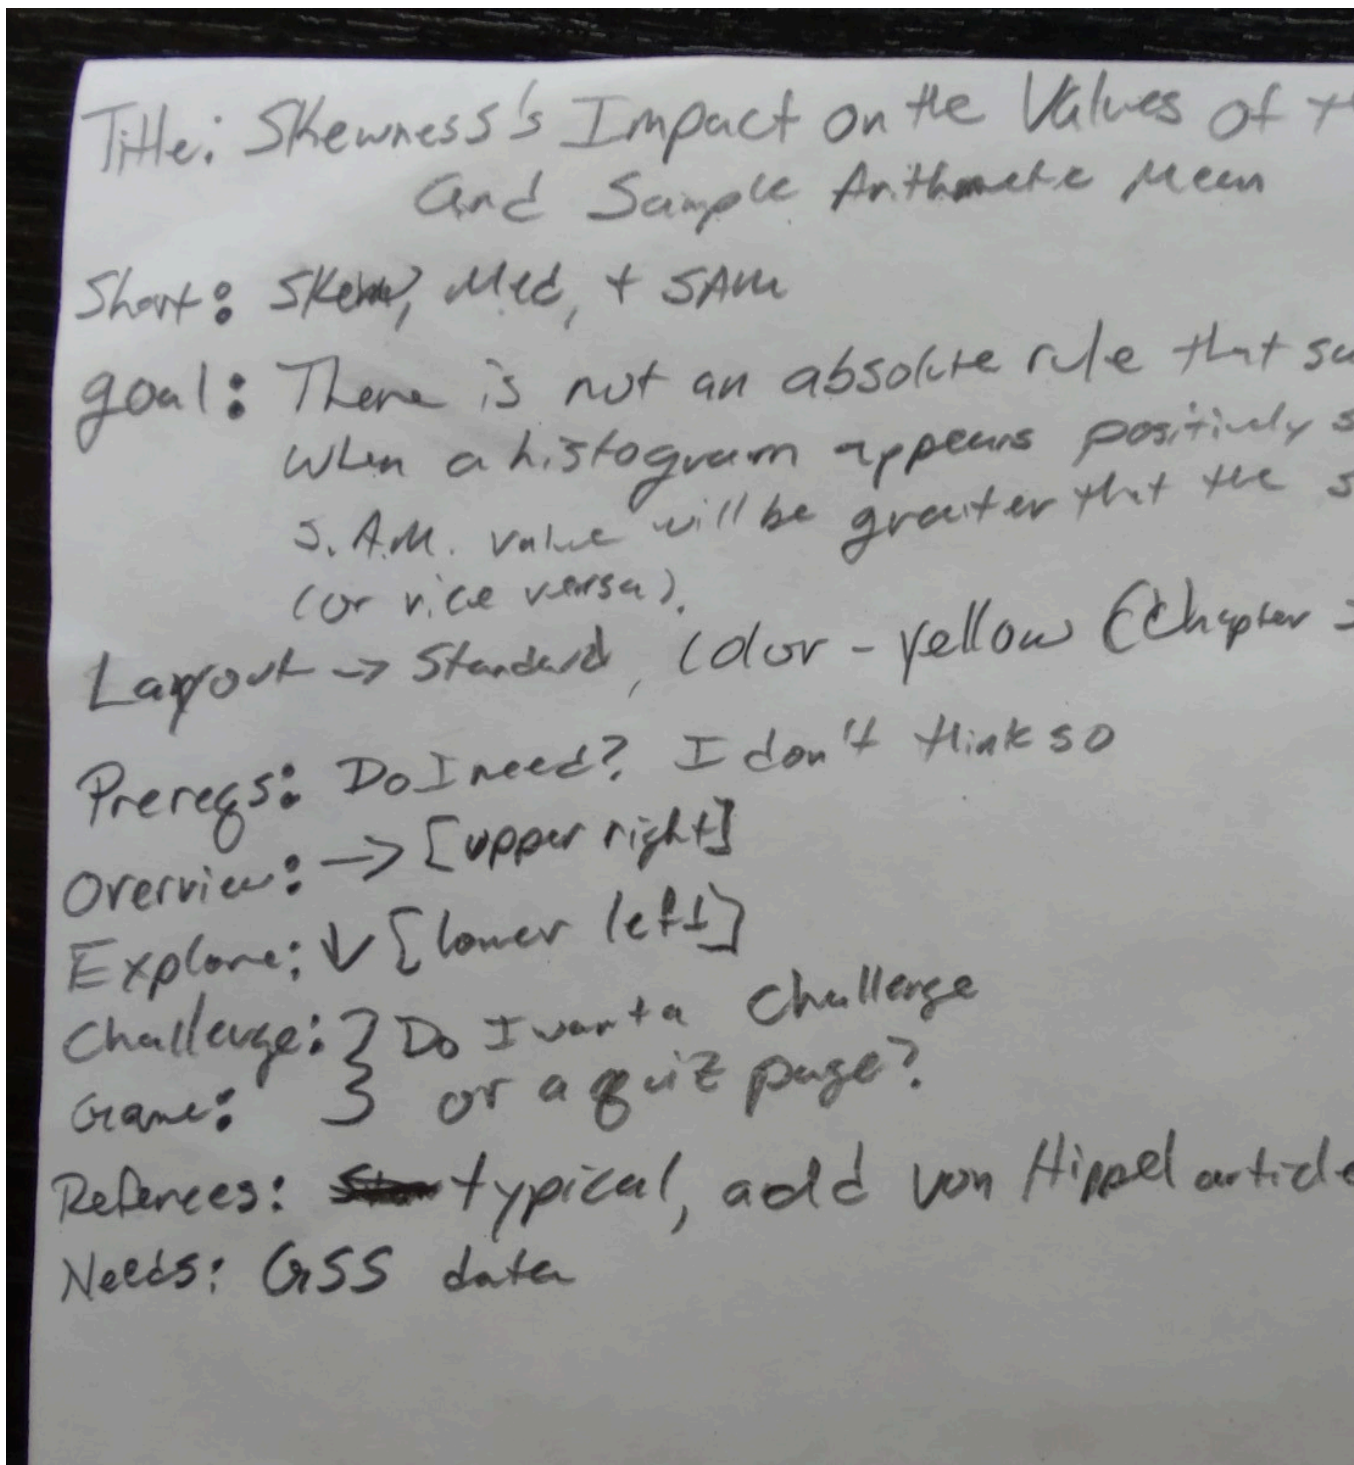 Title: Skewness's Impact on the Values of th
and Sample Arithmetic Mean
Short: Skew, Med, + SAM
goal: There is not an absolute rule that su
when a histogram appears positively s
S.A.M. value will be greater that the s
(or vice versa).
Layout -> Standard, Color - yellow (Chapter
Prereqs: Do I need? I don't think so
Overview: -> [upper right]
Explore: ↓ [lower left]
Challenge: } Do I want a challenge
Game: } or a quiz page?
Refereces: typical, add von Hippel article
Needs: GSS data